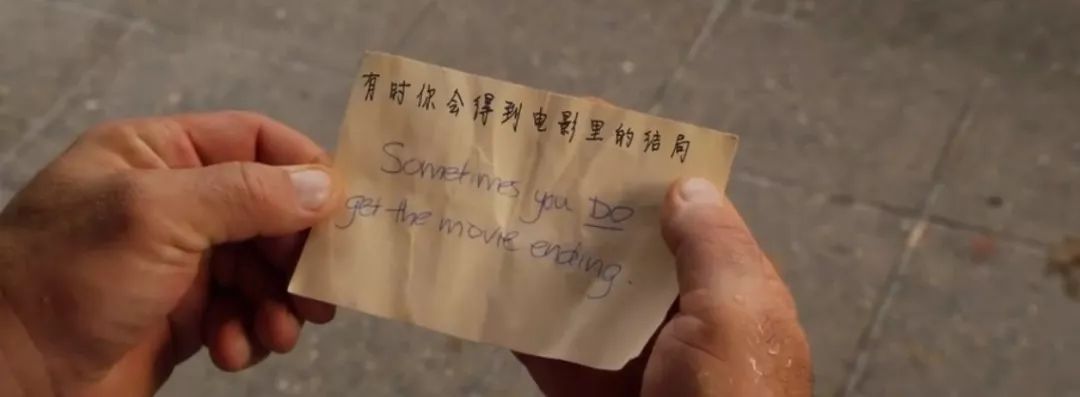 有时你会得到电影里的结局
Sometimes you DO
get the movie ending.